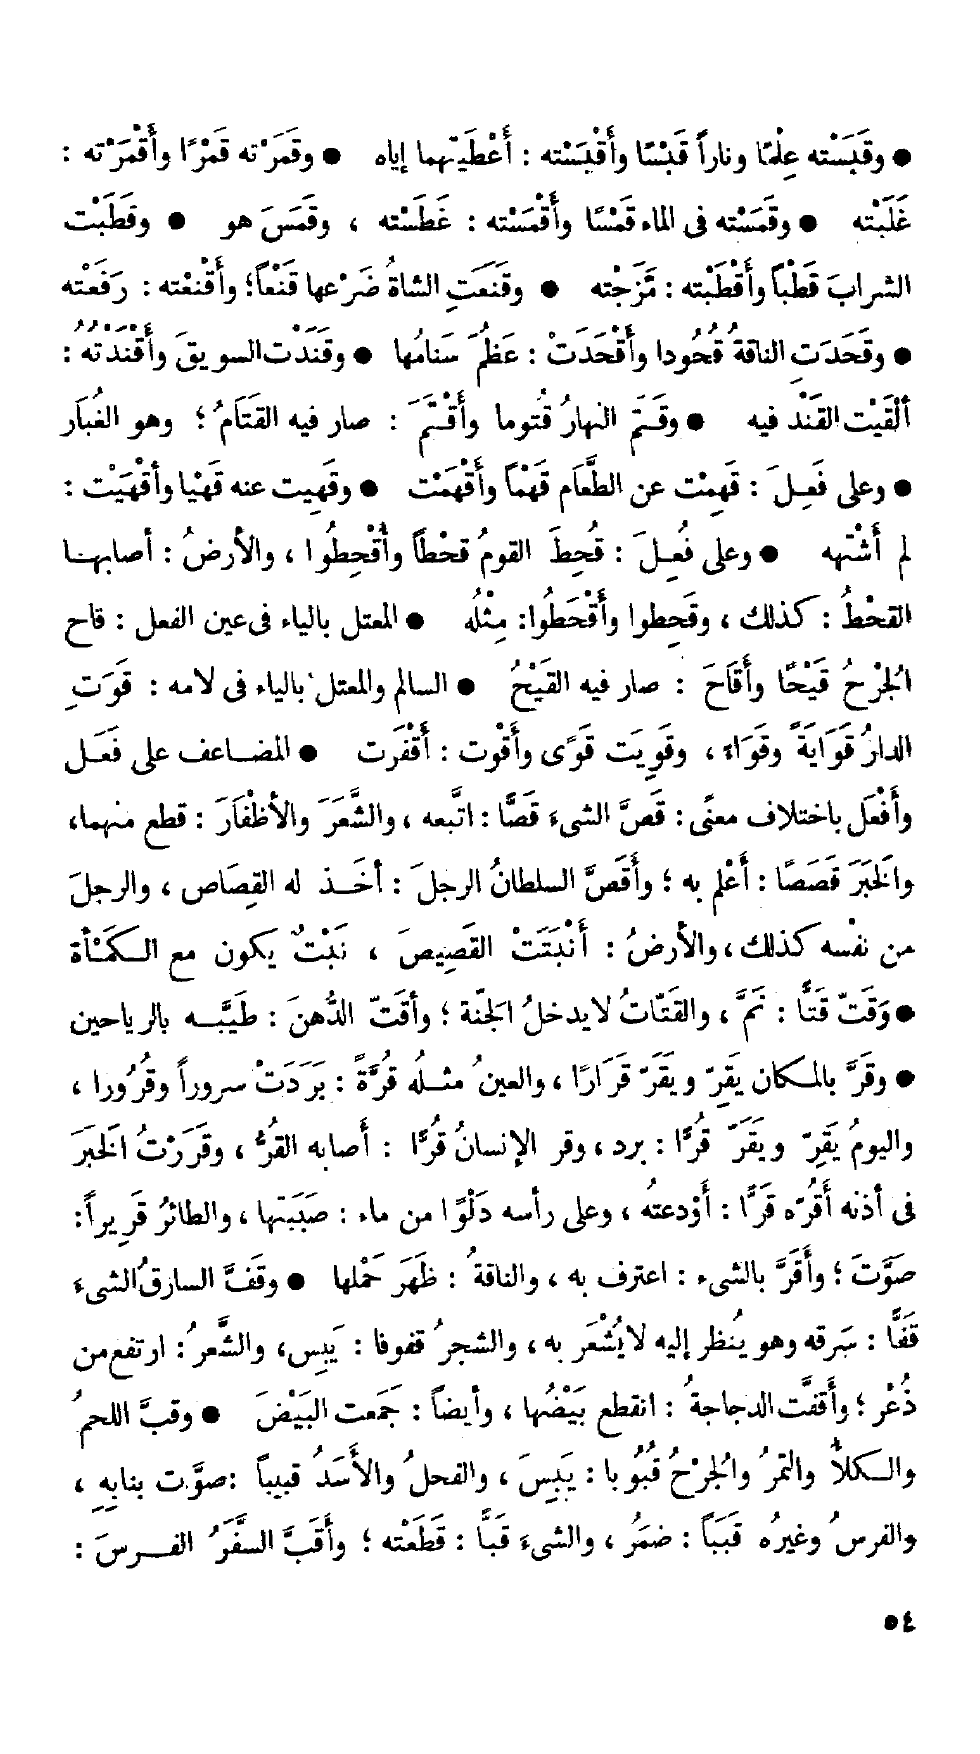 ● وقَبَسْته عِلْمًا وناراً قَبْسًا وأَقْبَسْته : أَعْطَيتهما إياه ● وقَمَرْته قَمْرًا وأَقْمَرْته :
غَلَبْته ● وقَمَسْته فى الماء قَمْسًا وأَقْمَسْته : غَطَسْته ، وقَمَسَ هو ● وقَطَبْت
الشرابَ قَطْباً وأَقْطَبْته : مَزَجْته ● وقَنَعَتِ الشاةُ ضَرْعها قَنْعاً؛ وأَقْنعْته : رَفَعْته
● وقَحَدَتِ الناقةُ قُحُودا وأَقْحَدَتْ : عَظُمَ سَنامُها ● وقَنَدْت السويقَ وأَقْنَدْتُهُ :
ألْقَيْت القَنْد فيه ● وقَتَم النهارُ قُتوما وأَقْتَمَ : صار فيه القَتَامُ ؛ وهو الغُبَار
● وعلى فَعِلَ : قَهِمْت عن الطَّعَام قَهْمًا وأَقْهَمْت ● وقَهِيت عنه قَهْيا وأقْهَيْت :
لم أَشْتهه ● وعلى فُعِلَ : قُحِطَ القومُ قحْطاً وأُقْحِطُوا ، والأرضُ : أصابهـا
القحْطُ : كذلك ، وقَحِطوا وأَقْحَطُوا: مِثْلُه ● المعتل بالياء فى عين الفعل : قاح
الجُرْحُ قَيْحًا وأَقَاحَ : صار فيه القَيْحُ ● السالم والمعتل بالياء فى لامه : قَوَتِ
الدارُ قَوَايَةً وقَوَاءً ، وقَوِيَت قَوًى وأَقْوت : أَقْفَرت ● المضـاعف على فَعَـل
وأَفْعَل باختلاف معنًى : قَصَّ الشىءَ قَصًّا : اتَّبعه ، والشَّعَرَ والأظْفَارَ : قطع منهما،
والخَبَرَ قَصَصًا : أَعْلم به ؛ وأَقَصَّ السلطانُ الرجلَ : أخَـذ له القِصَاص ، والرجلَ
من نفْسه كذلك ، والأرضُ : أَنْبَتَتْ القَصِيصَ ، نَبْتٌ يكون مع الـكَمْـأة
● وَقَتّ قَتًّا : نَمَّ ، والقَتّاتُ لا يدخلُ الجَنّة ؛ وأقَتّ الدُّهنَ : طَيَّبـه بالرياحين
● وقَرَّ بالمـكان يَقِرّ ويَقَرّ قَرَارًا ، والعينُ مثـلُه قُرَّةً : بَرَدَتْ سروراً وقُرُورا ،
واليومُ يَقِرّ ويَقَرّ قُرًّا : برد ، وقر الإنسانُ قُرًّا : أَصابه القُرُّ ، وقَرَرْتُ الخَبَرَ
فى أذنه أَقُرّه قَرًّا : أَوْدعتُه ، وعلى رأسه دَلْوًا من ماء : صَبَبتها ، والطائرُ قَرِيراً:
صَوَّتَ ؛ وأَقَرَّ بالشىء : اعترف به ، والناقةُ : ظَهَرَ حَمْلها ● وقَفَّ السارقُ الشىءَ
قَفًّا : سَرقه وهو يُنظر إليه لا يُشْعَر به ، والشجرُ قفوفا : يَبِس، والشَّعرُ : ارتفع من
ذُعْر ؛ وأَقفَّت الدجاجةُ : انقطع بَيْضُها ، وأيضاً : جَمَعت البَيْضَ ● وقبَّ اللحمُ
والـكلأُ والتمرُ والجُرْحُ قُبُوبا : يَبِسَ ، والفحلُ والأَسَدُ قبيباً :صوَّت بنابِهِ ،
والفرسُ وغيرُه قَبَباً : ضمَرُ ، والشىءَ قَبًّا : قَطَعْته ؛ وأَقَبَّ السَّفَرُ الفـرسَ :
٥٤